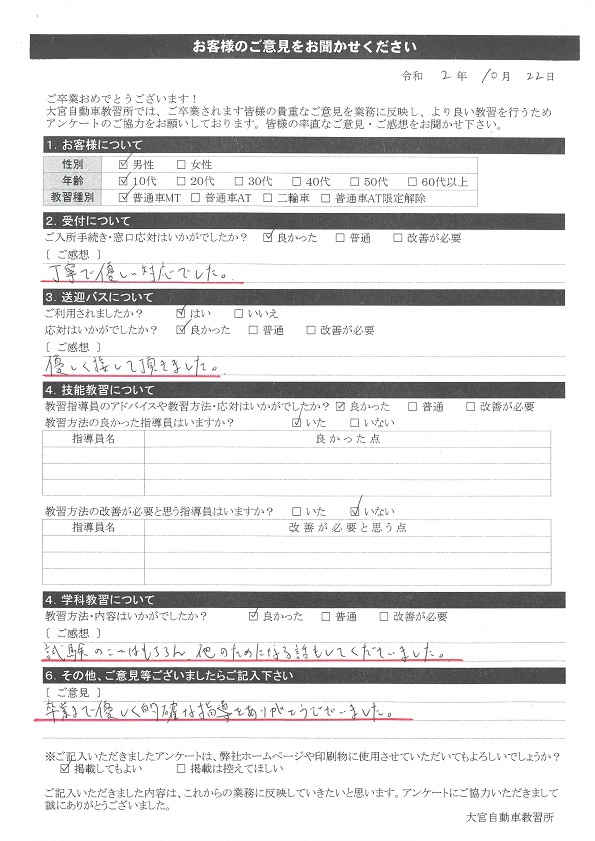 お客様のご意見をお聞かせください
令和 2 年 10 月 22 日
ご卒業おめでとうございます!
大宮自動車教習所では、ご卒業されます皆様の貴重なご意見を業務に反映し、より良い教習を行うため
アンケートのご協力をお願いしております。皆様の率直なご意見・ご感想をお聞かせ下さい。
1. お客様について
性別 ☑ 男性 □ 女性
年齢 ☑ 10代 □ 20代 □ 30代 □ 40代 □ 50代 □ 60代以上
教習種別 ☑ 普通車MT □ 普通車AT □ 二輪車 □ 普通車AT限定解除
2. 受付について
ご入所手続き・窓口応対はいかがでしたか? ☑ 良かった □ 普通 □ 改善が必要
[ ご感想 ]
丁寧で優しい対応でした。
3. 送迎バスについて
ご利用されましたか? ☑ はい □ いいえ
応対はいかがでしたか? ☑ 良かった □ 普通 □ 改善が必要
[ ご感想 ]
優しく接して頂きました。
4. 技能教習について
教習指導員のアドバイスや教習方法・応対はいかがでしたか? ☑ 良かった □ 普通 □ 改善が必要
教習方法の良かった指導員はいますか? ☑ いた □ いない
指導員名 良かった点
教習方法の改善が必要と思う指導員はいますか? □ いた ☑ いない
指導員名 改善が必要と思う点
4. 学科教習について
教習方法・内容はいかがでしたか? ☑ 良かった □ 普通 □ 改善が必要
[ ご感想 ]
試験のことはもちろん、他のためになる話もしてくださいました。
6. その他、ご意見等ございましたらご記入下さい
[ ご意見 ]
卒業まで優しく的確な指導をありがとうございました。
※ご記入いただきましたアンケートは、弊社ホームページや印刷物に使用させていただいてもよろしいでしょうか?
☑ 掲載してもよい □ 掲載は控えてほしい
ご記入いただきました内容は、これからの業務に反映していきたいと思います。アンケートにご協力いただきまして
誠にありがとうございました。
大宮自動車教習所